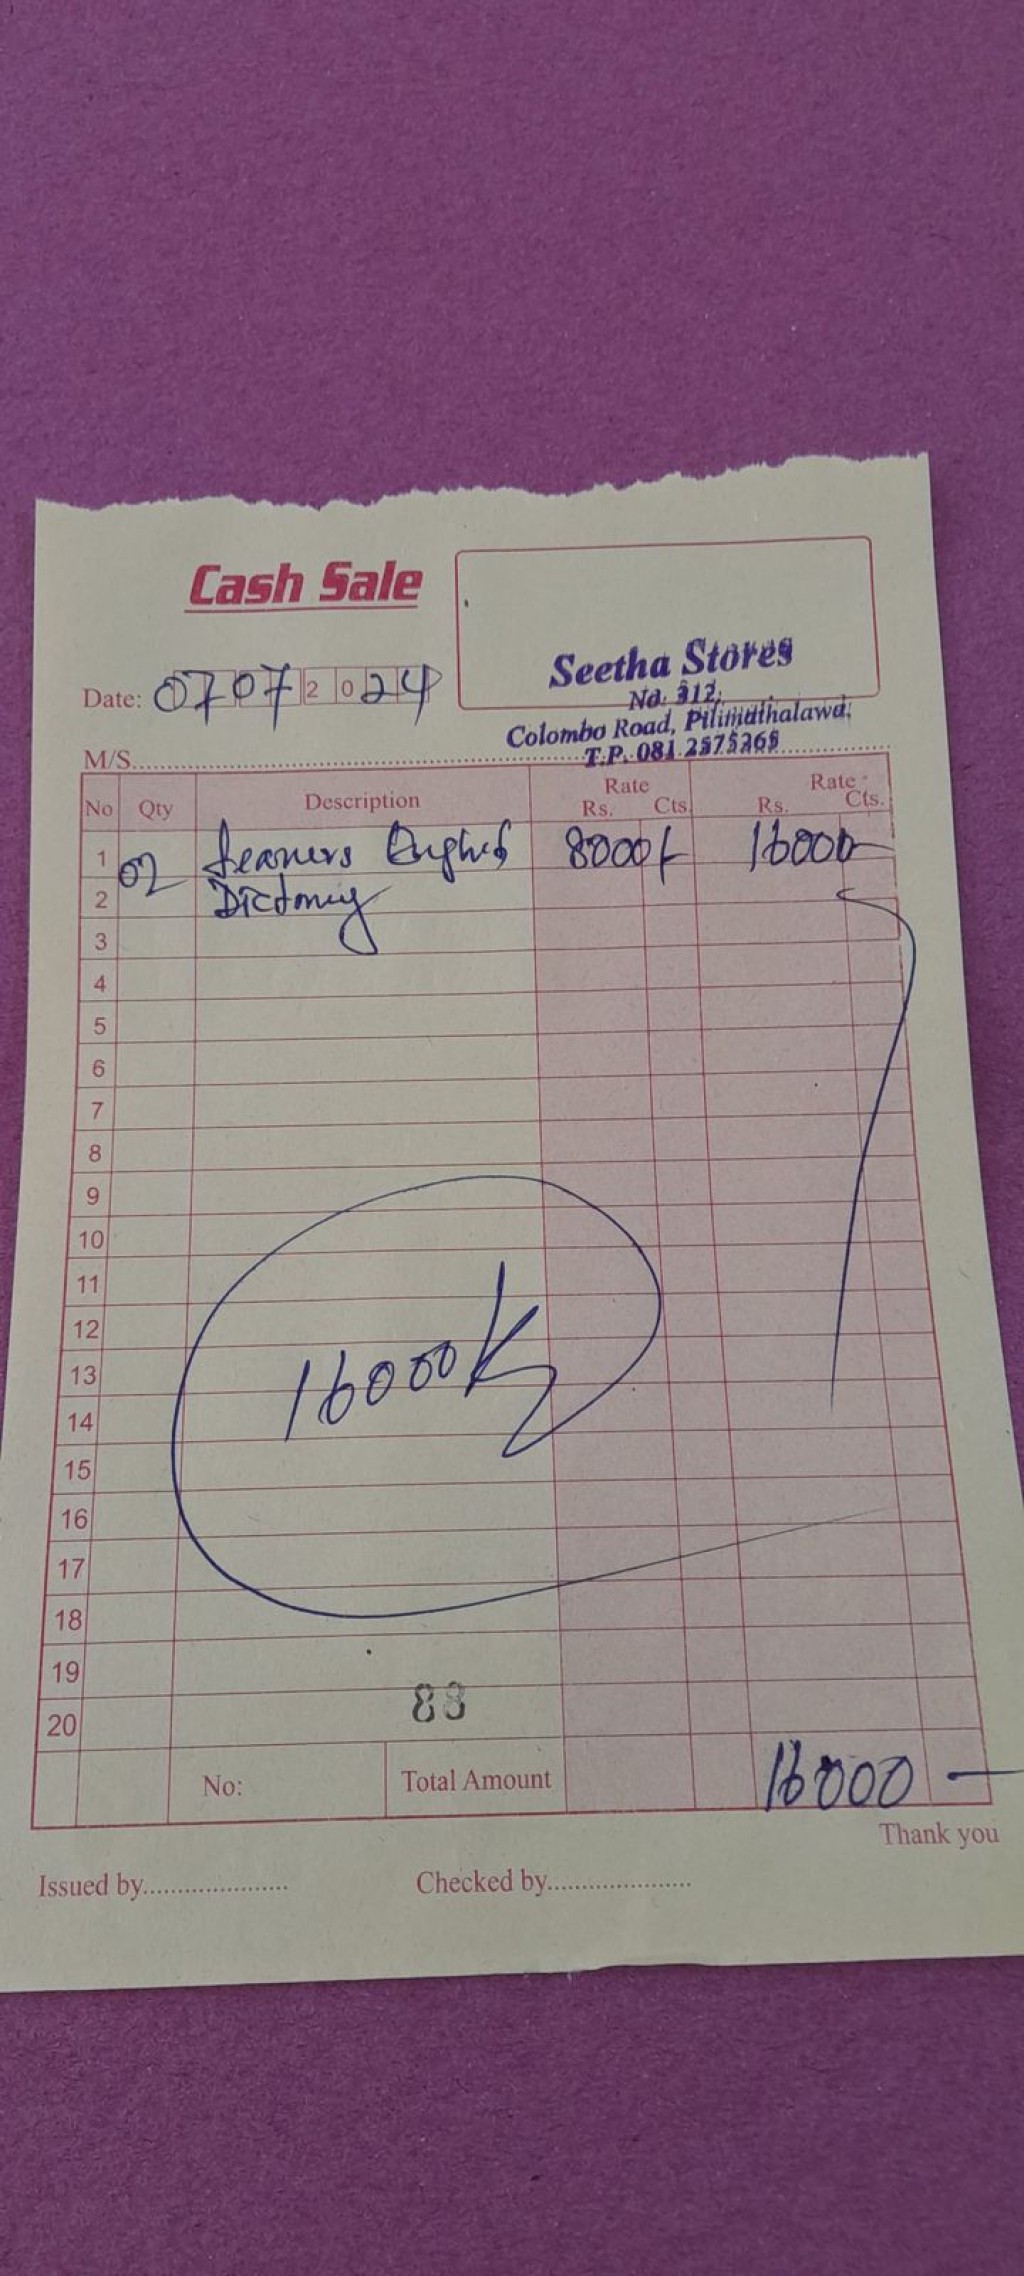 Cash Sale
Seetha Stores
No. 312,
Colombo Road, Pilimathalawa.
T.P. 081 2575265
Date: 07 07 2 0 24
M/S
No Qty Description Rate Rs. Cts. Rate Rs. Cts.
1 02 Learners English 8000/- 16000
2 Dictonary
3
4
5
6
7
8
9
10
11
12
13
14
15
16
17
18
19
20
16000/-
88
No: Total Amount 16000 —
Thank you
Issued by
Checked by